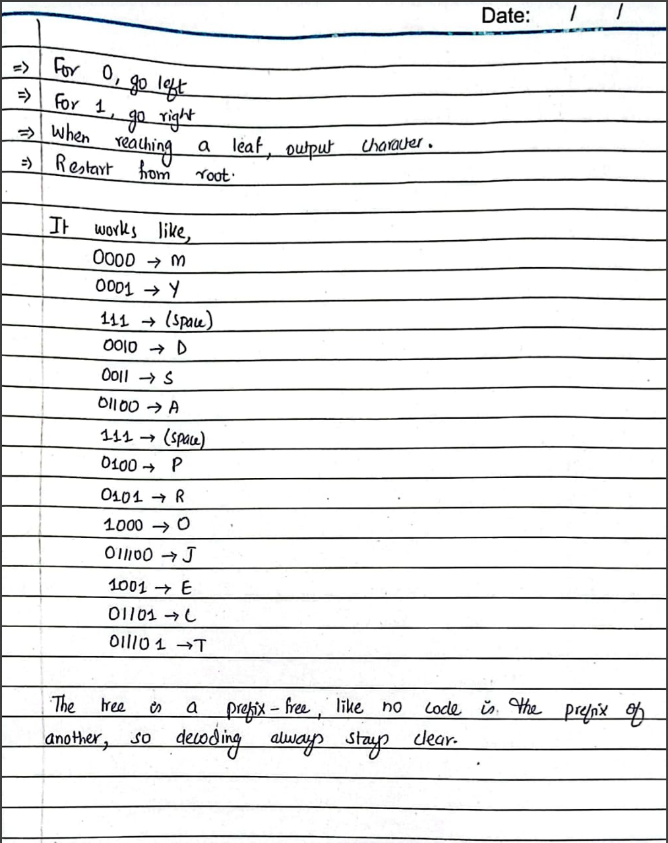 Date: / /
=> For 0, go left
=> For 1, go right
=> When reaching a leaf, output character.
=> Restart from root.
It works like,
0000 → M
0001 → Y
111 → (space)
0010 → D
0011 → S
01100 → A
111 → (space)
0100 → P
0101 → R
1000 → O
011100 → J
1001 → E
01101 → C
011101 → T
The tree is a prefix-free, like no code is the prefix of
another, so decoding always stays clear.